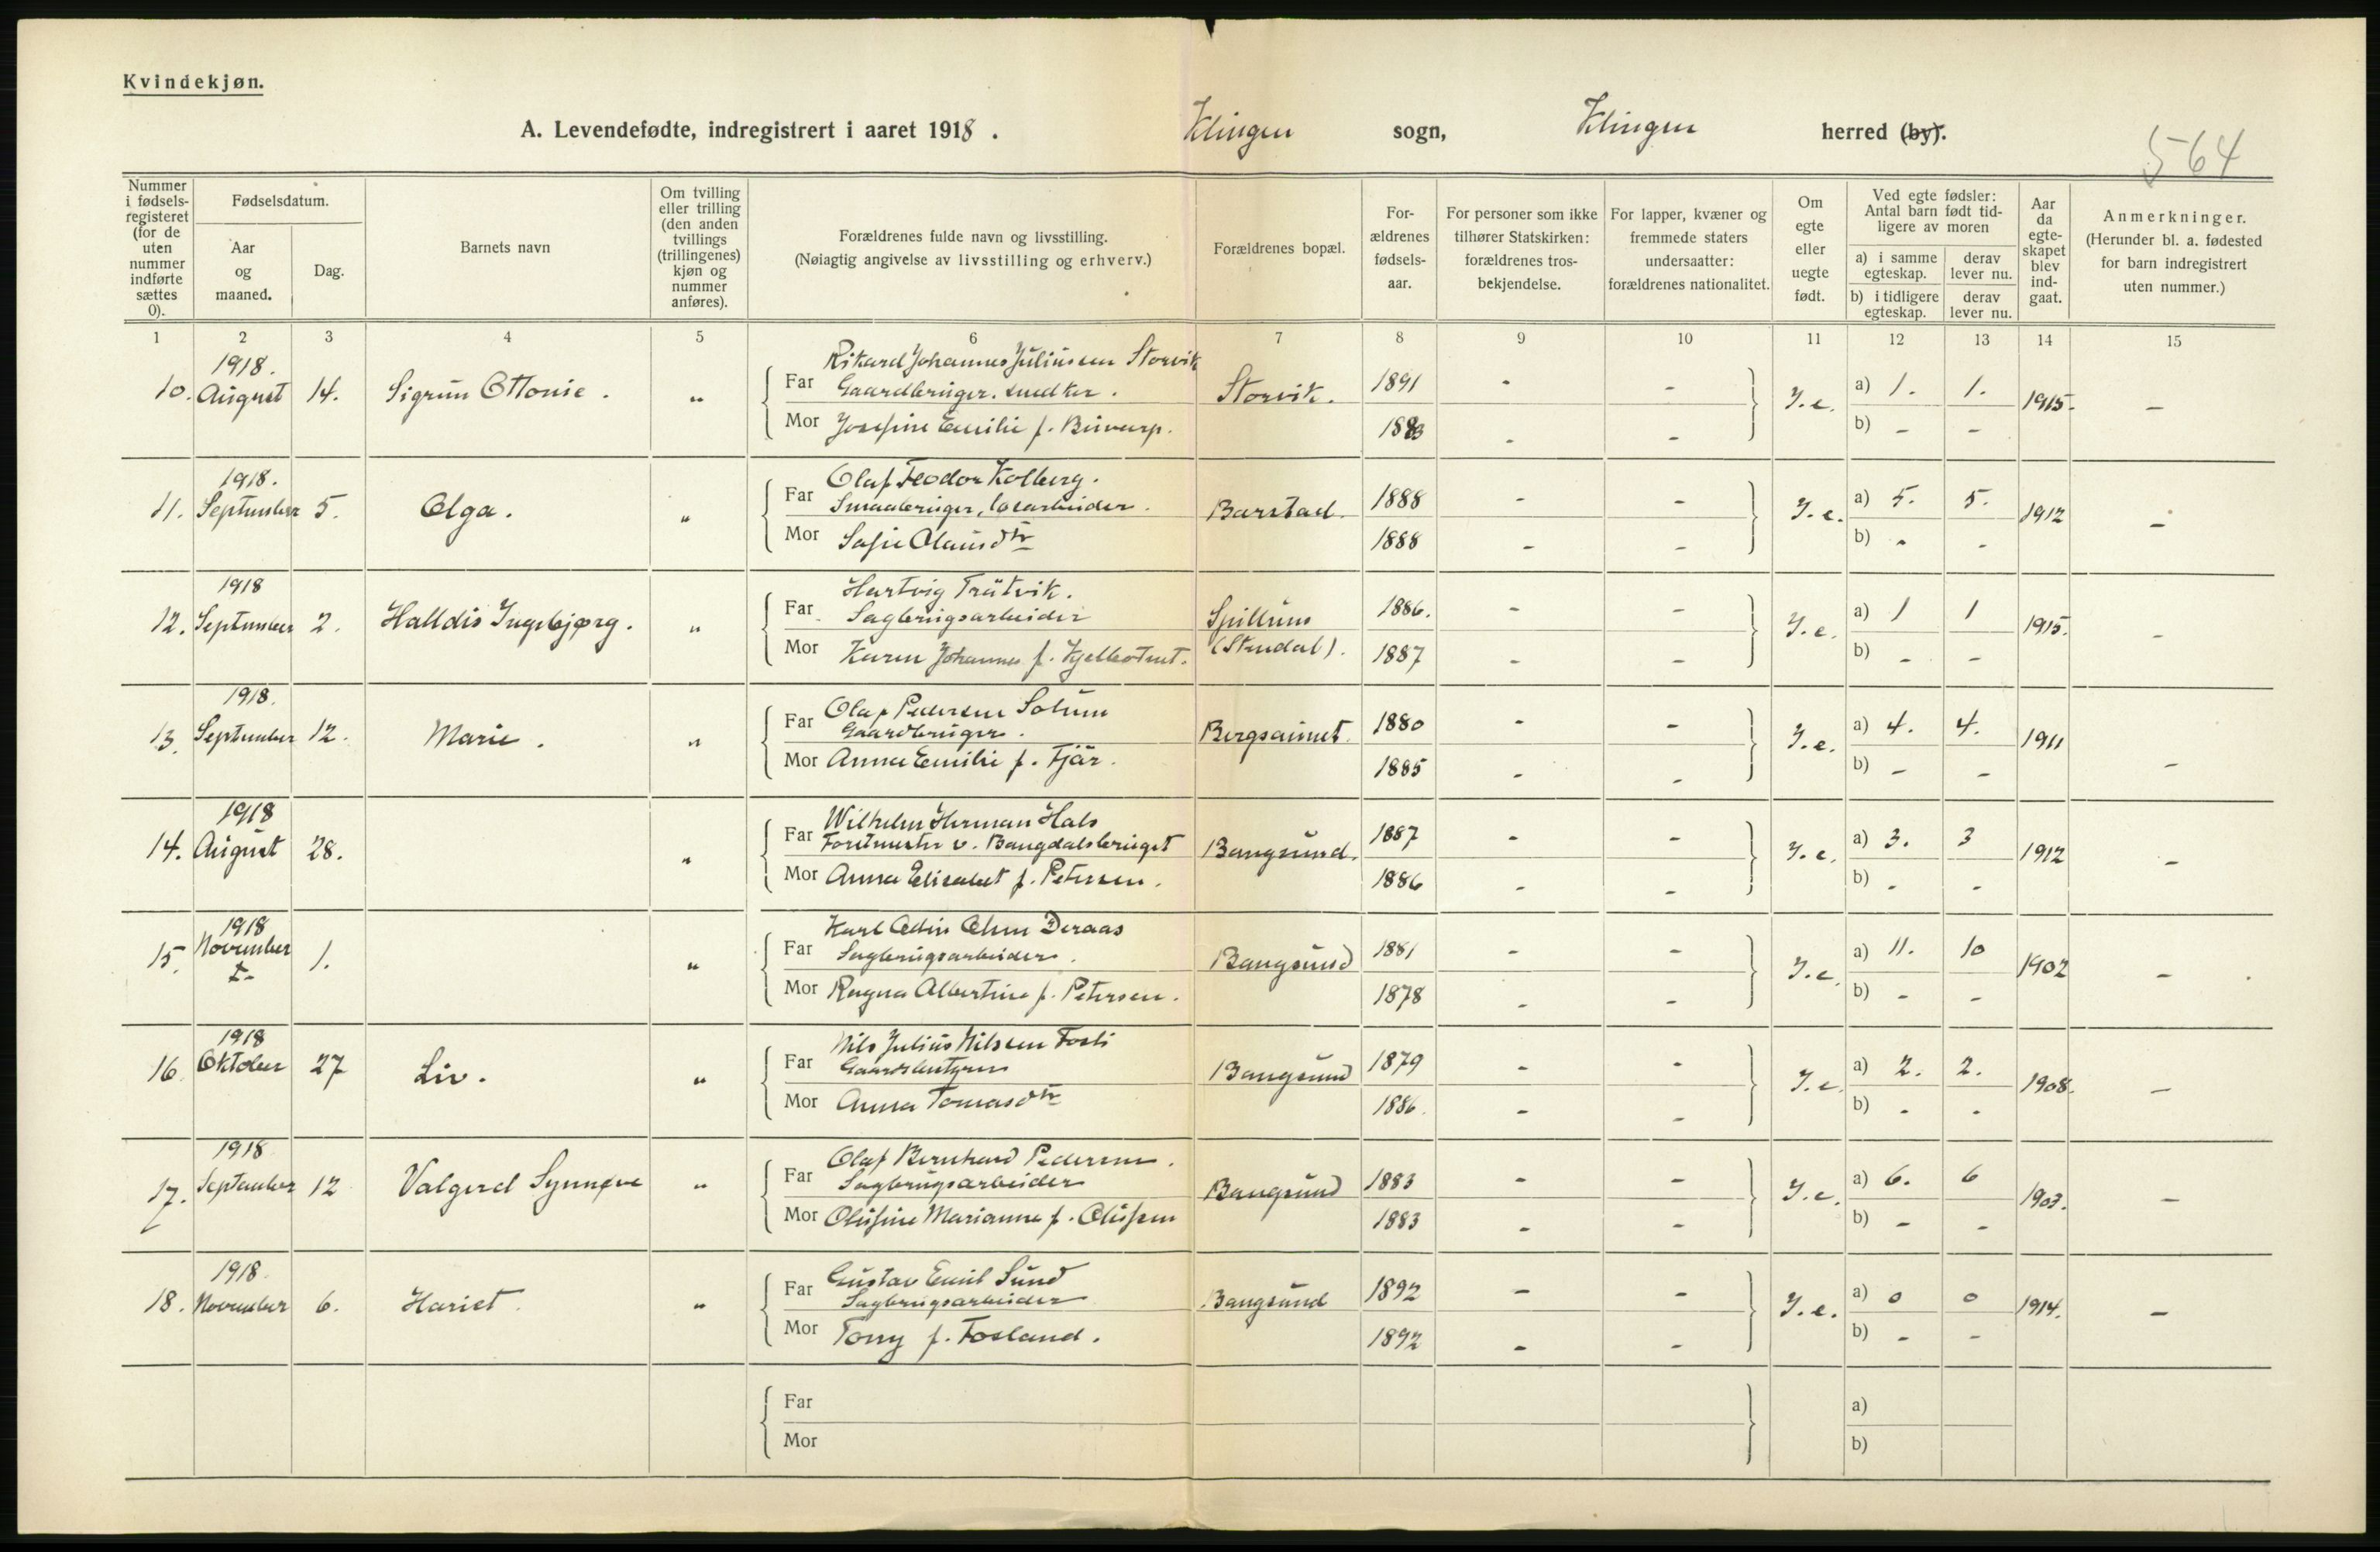 Kvindekjøn.
A. Levendefødte, indregistrert i aaret 1918. Klingen sogn, Klingen herred (by).
564
Nummer i fødselsregisteret (for de uten nummer indførte sættes 0).
Fødselsdatum.
Aar og maaned.
Dag.
Barnets navn
Om tvilling eller trilling (den anden tvillings (trillingenes) kjøn og nummer anføres).
Forældrenes fulde navn og livsstilling.
(Nøiagtig angivelse av livsstilling og erhverv.)
Forældrenes bopæl.
Forældrenes fødselsaar.
For personer som ikke tilhører Statskirken: forældrenes trosbekjendelse.
For lapper, kvæner og fremmede staters undersaatter: forældrenes nationalitet.
Om egte eller uegte født.
Ved egte fødsler: Antal barn født tidligere av moren
a) i samme egteskap.
derav lever nu.
b) i tidligere egteskap.
derav lever nu.
Aar da egteskapet blev indgaat.
Anmerkninger.
(Herunder bl. a. fødested for barn indregistrert uten nummer.)
1 2 3 4 5 6 7 8 9 10 11 12 13 14 15
1918. Rikard Johannes Juliussen Storvik
10. August 14. Sigrun Ottonie. " Far Gaardbruger. snedker. Storvik. 1891 - - I.e. a) 1. 1. 1915. -
Mor Josefine Emilie f. 1883 - - b) - -
1918. Olaf Teodor Kolberg.
11. September 5. Olga. " Far Smaabruger, løsarbeider. Barstad. 1888 - - I.e. a) 5. 5. 1912 -
Mor Sofie Olausdtr 1888 - - b) - -
1918 Hartvig Trätvik.
12. September 2. Halldis Ingebjørg. " Far Sagbrugsarbeider Spillum 1886. - - I.e. a) 1 1 1915. -
Mor Karen Johanne f. (Stendal). 1887 - - b) - -
1918. Olaf Pedersen Solum
13. September 12. Marie. " Far Gaardbruger. Bergsaunet. 1880 - - I.e. a) 4. 4. 1911 -
Mor Anna Emilie f. Fjär. 1885 - - b) - -
1918 Wilhelm Herman Hals
14. August 28. " Far Forstmester v. Bangdalsbruget Bangsund. 1887 - - I.e. a) 3. 3 1912 -
Mor Anna Elisabet f. Petersen. 1886 - - b) - -
1918 Karl Odin Olsen Deraas
15. November 1. " Far Sagbrugsarbeider. Bangsund 1881 - - I.e. a) 11. 10 1902 -
Mor Ragna Albertine f. Petersen. 1878 - - b) - -
1918 Nils Julius Nilssen Fosli
16. Oktober 27 Liv. " Far Gaardsbestyrer Bangsund 1879 - - I.e. a) 2. 2. 1908. -
Mor Anna Tomasdtr 1886. - - b) - -
1918 Olaf Bernhard Pedersen.
17. September 12 Valgerd Synnøve " Far Sagbrugsarbeider Bangsund 1883 - - I.e. a) 6. 6 1903. -
Mor Olufine Marianne f. Olufsen 1883 - - b) - -
1918. Gustav Emil Sund
18. November 6. Hariet. " Far Sagbrugsarbeider Bangsund 1892 - - I.e. a) 0 0 1914. -
Mor Tony f. Fosland. 1892 - - b) - -
Far a)
Mor b)